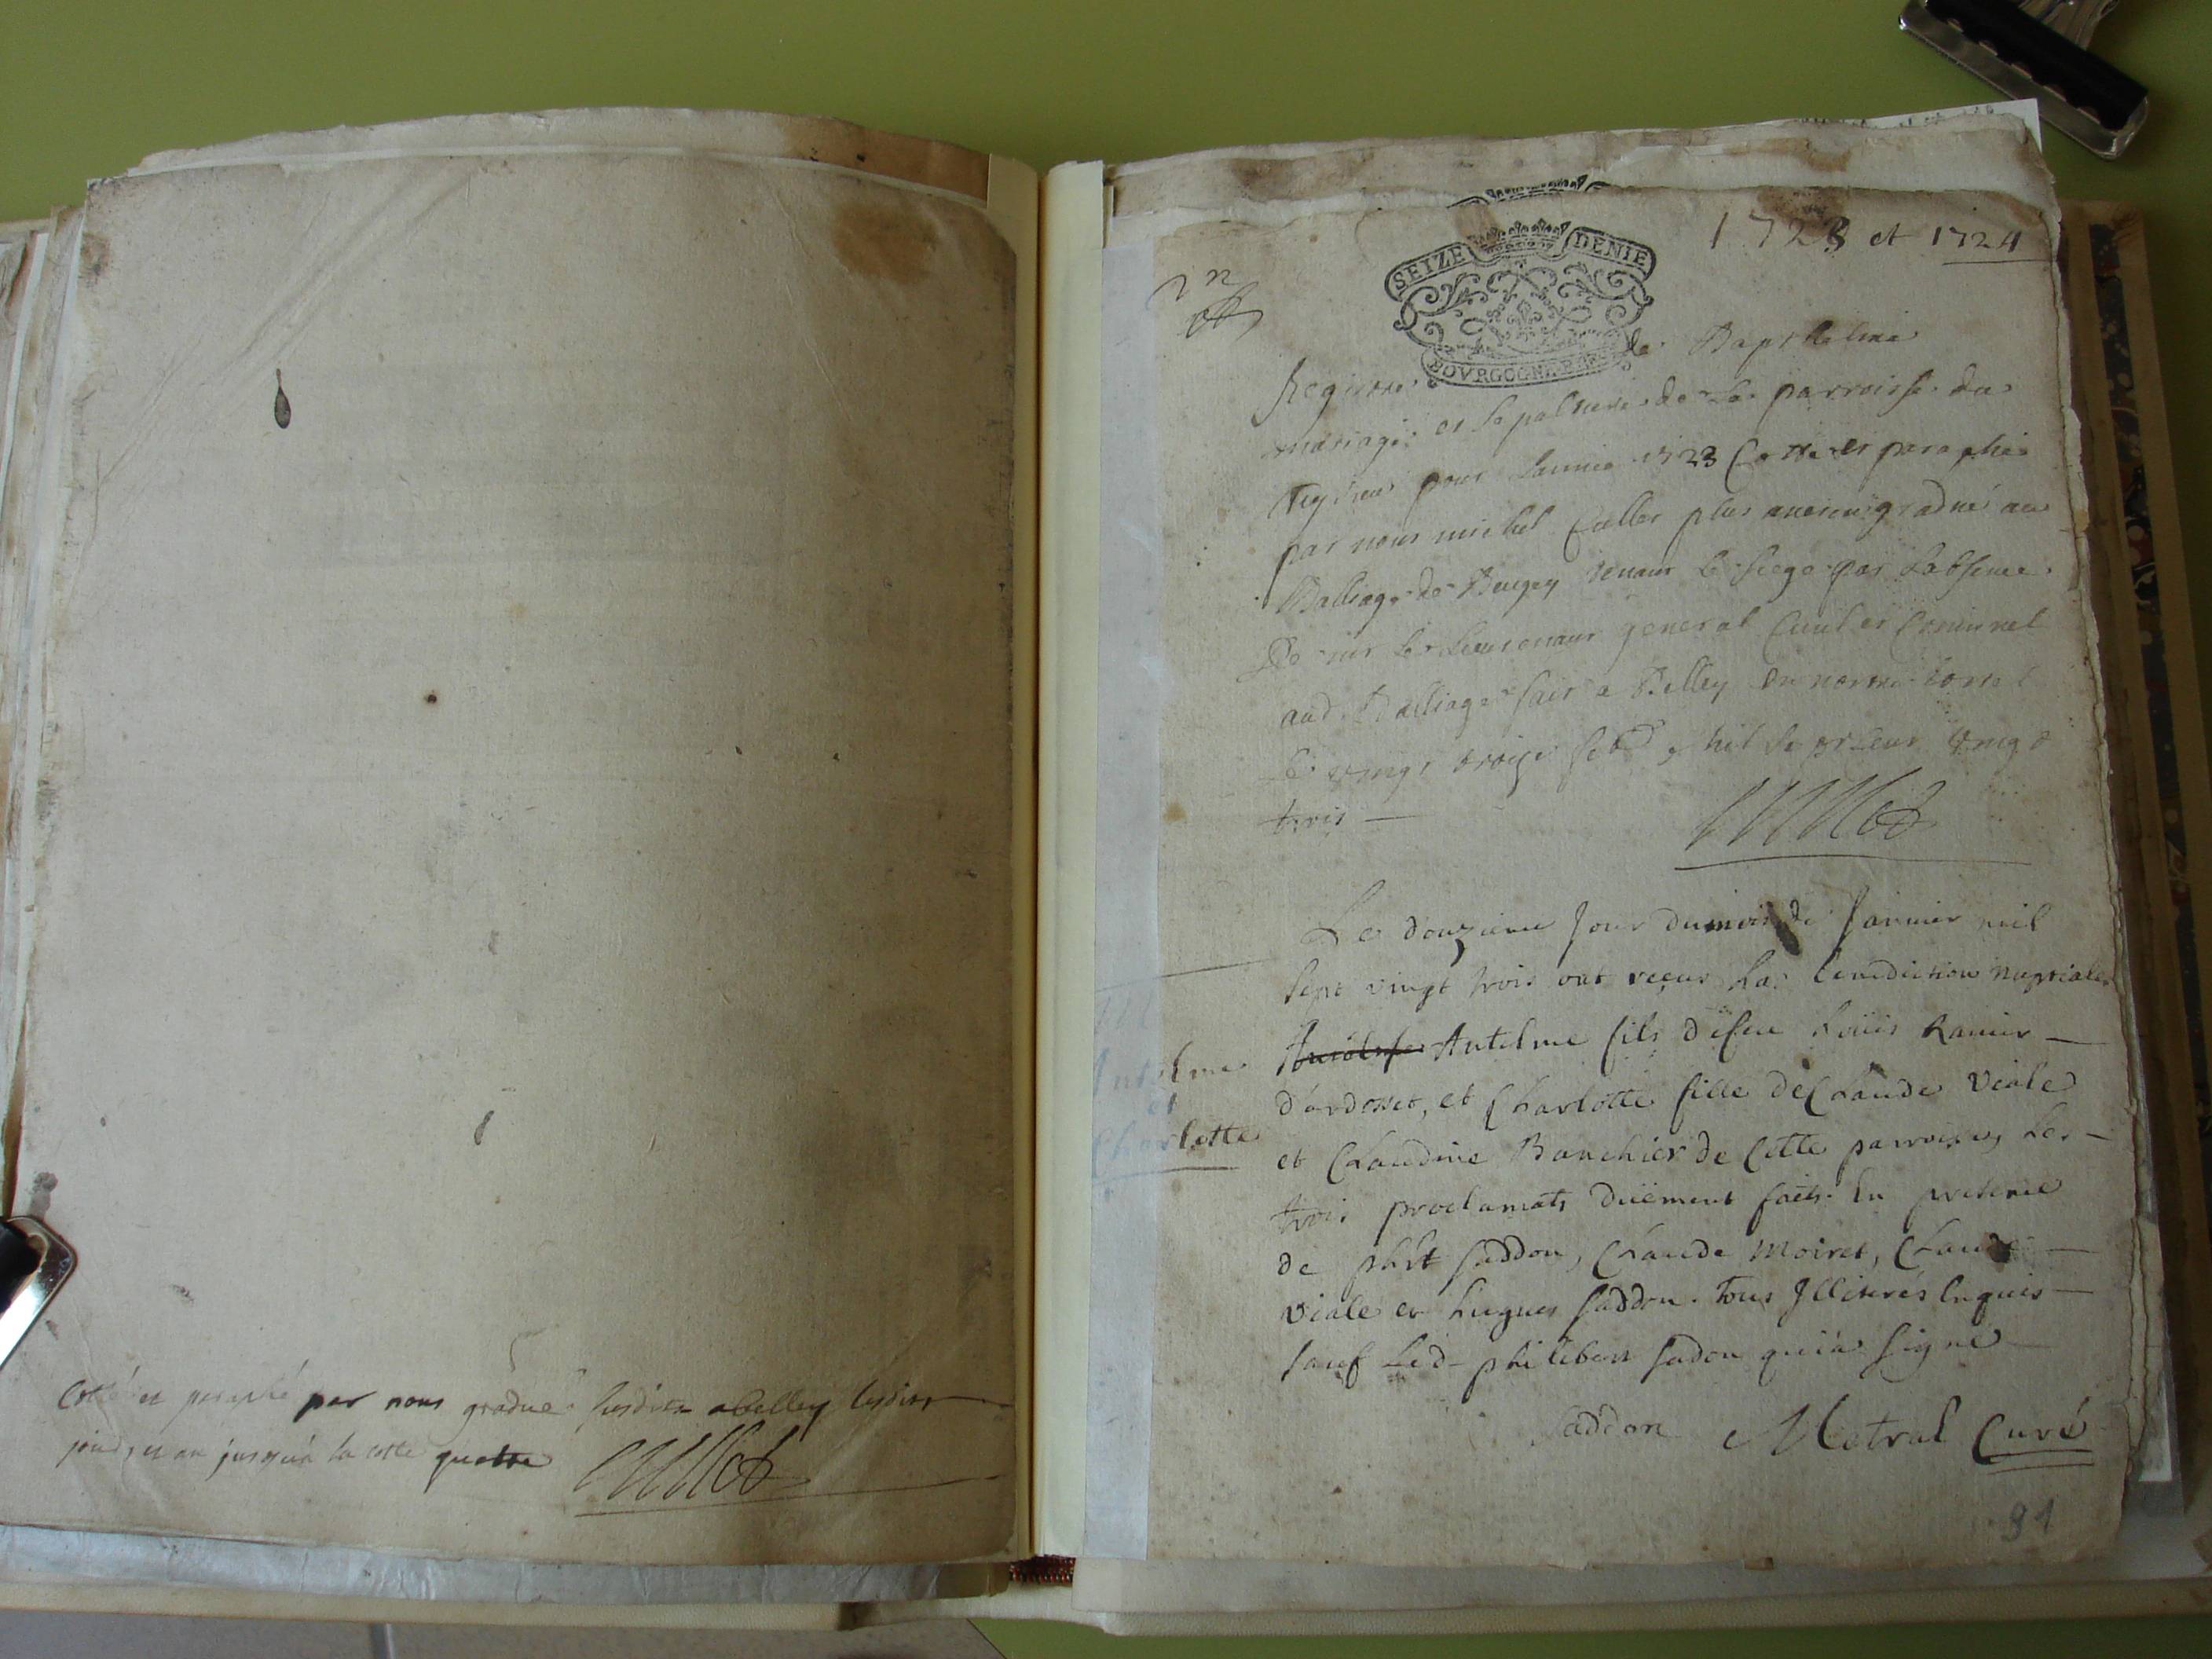 Cotté et paraphé par nous gradué susdit a belley lesdits
jour et an jusqu'a la cotte quattre
Cullet
1723 et 1724
SEIZE DENIE
BOVRGOGNE
Registre de Baptesme
mariage et sepulture de la parroisse de
pour lannée 1723 Cotté et paraphé
par nous michel Cullet plus ancien gradué au
Balliage de Bugey tenant le siege par labsence
De mr le Lieutenant general Civil et Criminel
aud. Balliage fait a Belley
le vingt mil sept cent vingt
trois —
Cullet
Le douzieme jour du mois de Janvier mil
sept vingt trois ont reçeus la benediction nuptiale
Antelme fils de feu Loüis Ramier —
d'ardosset, et Charlotte fille de Claude Viale
et Claudine Banchier de Cette parroisse, les —
trois proclamats düement faits. En presence
de phbt Saddon, Claude Moiret, Claude —
Viale et hugues Saddon. tous Jlliterés Enquis —
sauf led- philibert Sadon qui a signé —
Antelme
et
Charlotte
Saddon Metral Curé
91